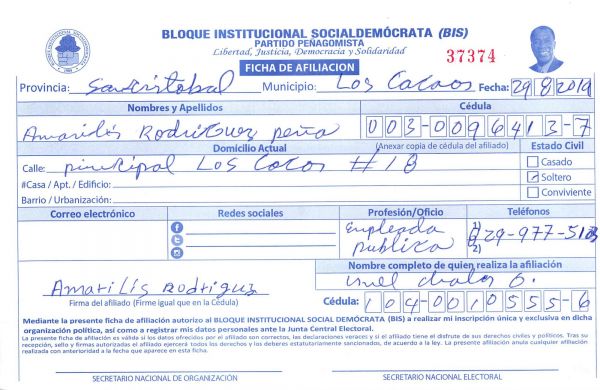 BLOQUE INSTITUCIONAL SOCIALDEMÓCRATA (BIS)
PARTIDO PEÑAGOMISTA
Libertad, Justicia, Democracia y Solidaridad
37374
FICHA DE AFILIACION
Provincia: San Cristobal Municipio: Los Cacaos Fecha: 29/8/2019
Nombres y Apellidos Cédula
Amarilis Rodriguez peña 003-0096413-7
Domicilio Actual (Anexar copia de cédula del afiliado) Estado Civil
Calle: principal Los Cocos #18 Casado
#Casa / Apt. / Edificio: Soltero
Barrio / Urbanización: Conviviente
Correo electrónico Redes sociales Profesión/Oficio Teléfonos
Empleada 1)
publica 2) 829-977-5103
Nombre completo de quien realiza la afiliación
Amarilis Rodriguez
Firma del afiliado (Firme igual que en la Cédula) Cédula: 104-0010555-6
Mediante la presente ficha de afiliación autorizo al BLOQUE INSTITUCIONAL SOCIAL DEMÓCRATA (BIS) a realizar mi inscripción única y exclusiva en dicha
organización política, así como a registrar mis datos personales ante la Junta Central Electoral.
La presente ficha de afiliación es válida si los datos ofrecidos por el afiliado son correctos, las declaraciones veraces y si el afiliado tiene el disfrute de sus derechos civiles y políticos. Tras su
recepción, sello y firmas autorizadas el afiliado ejercerá todos los derechos y los deberes estatutariamente sancionados, de acuerdo a la ley. La presente afiliación anula cualquier afiliación
realizada con anterioridad a la fecha que aparece en esta ficha.
SECRETARIO NACIONAL DE ORGANIZACIÓN SECRETARIO NACIONAL ELECTORAL